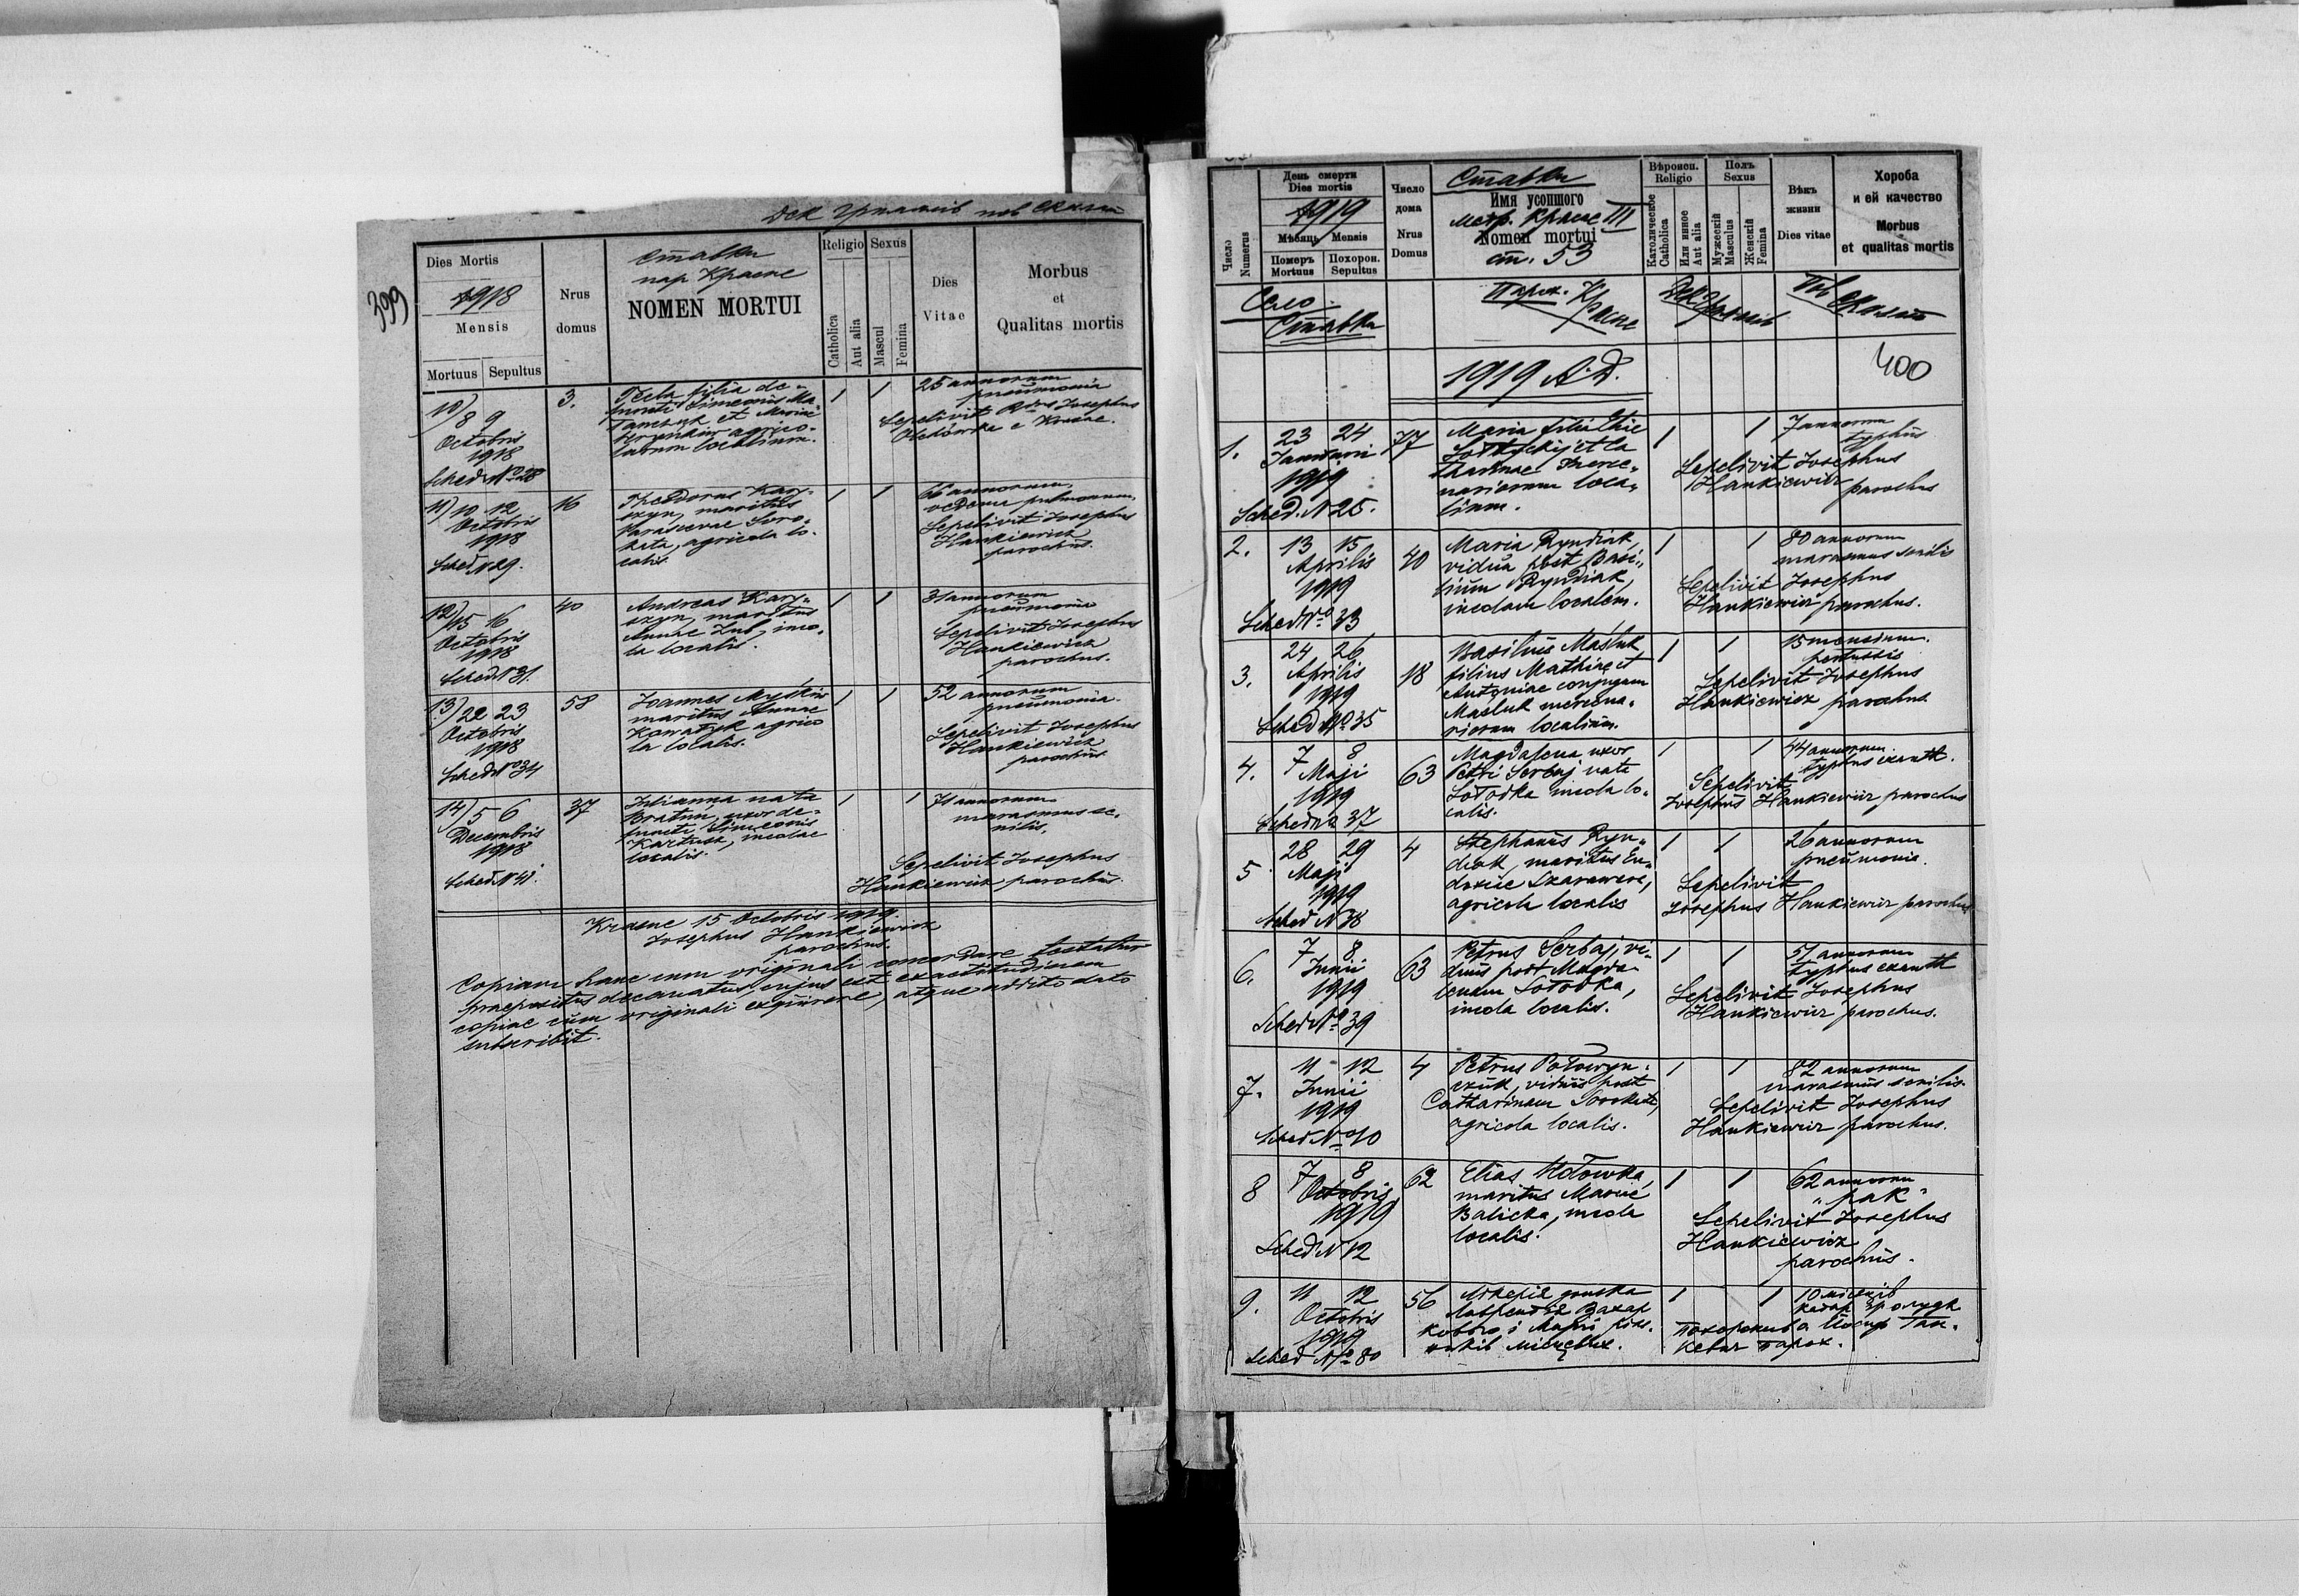 399
Дек Грималів пов Скалат
Dies Mortis
1918
Mensis
Mortuus Sepultus
Nrus
domus
Ставки
пар Красне
NOMEN MORTUI
Religio Sexus
Catholica
Aut alia
Mascul
Femina
Dies
Vitae
Morbus
et
Qualitas mortis
10)
8 9
Octobris
1918
Sched. No 28
3.
Tecla filia de-
functi Simeonis Ma-
et Mariae
agrico-
larum localium.
1 1
25 annorum
pneumonia
Sepelivit Josephus
e Krasne.
11) 10 12
Octobris
1918
Sched N 29.
16
Theodorus Kary-
szyn, maritus
Parascevae Soro-
kata, agricola lo-
calis.
1 1
66 annorum,
oedema pulmonum,
Sepelivit Josephus
Hankiewicz
parochus.
12) 15 16
Octobris
1918
Sched N 31.
40
Andreas Kary-
szyn, maritus
Annae Zub, inco-
la localis.
1 1
31 annorum
pneumonia
Sepelivit Josephus
Hankiewicz
parochus.
13) 22 23
Octobris
1918
Sched No 34
58
Joannes Myśkiw
maritus Annae
Kowalyk agrico
la localis.
1 1
52 annorum
pneumonia.
Sepelivit Josephus
Hankiewicz
parochus
14) 5 6
Decembris
1918
Sched. N 41.
37
Julianna nata
Bratun, uxor de-
functi Simeonis
incolae
localis.
1 1
71 annorum
marasmus se-
nilis,
Sepelivit Josephus
Hankiewicz parochus.
Krasne 15 Octobris 1919.
Josephus Hankiewicz
parochus.
Copiam hanc cum originali concordare testatur
praepositus decanatus, cujus est exactitudinem
copiae cum originali exquirere, atque addito dato
subscribit.
Число
Numerus
День смерти
Dies mortis
1919
Мѣсяць Mensis
Померъ Похорон.
Mortuus Sepultus
Число
дома
Nrus
Domus
Ставки
Имя усопшого
Метр. Красне III
Nomen mortui
ст. 53
Вѣроисп.
Religio
Католическое
Catholica
Или иное
Aut alia
Полъ
Sexus
Мужескій
Masculus
Женскій
Femina
Вѣкъ
жизни
Dies vitae
Хороба
и ей качество
Morbus
et qualitas mortis
Село
Ставки
Парох. Красне
Дек Грималів
Пов
Скалат
1919 A.D.
400
1.
23 24
Januarii
1919
Sched. N 25.
77
Maria filia
et Ca
tharinae merce-
nariorum loca-
lium.
1 1
7 annorum
typhus
Sepelivit Josephus
Hankiewicz parochus
2.
13 15
Aprilis
1919
Sched No 33
40
Maria Ryndiak,
vidua post Basi-
lium Ryndiak,
incolam localem.
1 1
80 annorum
marasmus senilis
Sepelivit Josephus
Hankiewicz parochus.
3.
24 26
Aprilis
1919
Sched No 35
18
Basilius Maśluk
filius Mathiae et
Antoniae conjugum
Maśluk mercena-
riorum localium.
1 1
15 mensium.
pertussis
Sepelivit Josephus
Hankiewicz parochus.
4.
7 8
Maji
1919
Sched No 37
63
Magdalena uxor
Petri Serbaj nata
Łotocka incola lo-
calis.
1 1
44 annorum.
typhus exanth.
Sepelivit
Josephus Hankiewicz parochus
5
28 29
Maji
1919
Sched N 38
4
Stephanus Ryn-
diak, maritus Eu-
doxiae
agricola localis
1 1
26 annorum
pneumonia.
Sepelivit
Josephus Hankiewicz parochus
6.
7 8
Junii
1919
Sched No 39
63
Petrus Serbaj, vi-
duus post Magda-
lenam Łotocka,
incola localis.
1 1
51 annorum
typhus exanth
Sepelivit Josephus
Hankiewicz parochus.
7.
11 12
Junii
1919
Sched No 40
4
Petrus Połowyn-
czuk, viduus post
Catharinam Sorokata,
agricola localis.
1 1
82 annorum
marasmus senilis.
Sepelivit Josephus
Hankiewicz parochus.
8
7 8
Octobris
1919
Sched N 12
62
Elias Hołowka,
maritus Mariae
Balicka, incola
localis.
1 1
62 annorum
"рак"
Sepelivit Josephus
Hankiewicz
parochus.
9.
11 12
Octobris
1919
Sched No 80
56
донька
Захар
кового і Марії
місцевих.
1 1
10 місяців
катар жолудк
Похоронив о Йосиф Ган-
кевич парох.